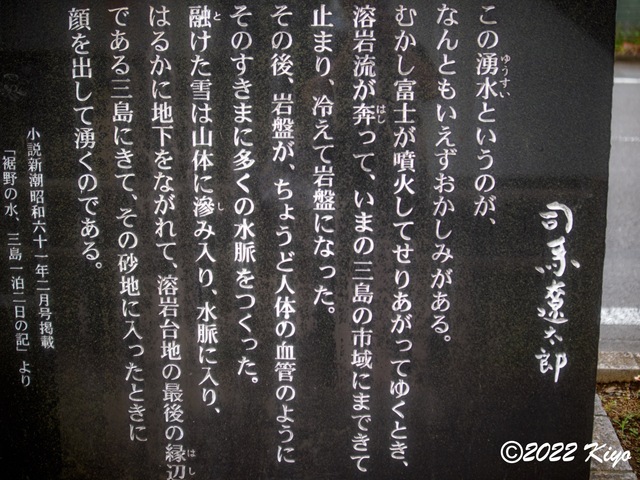 司馬遼太郎
この湧水というのが、
ゆうすい
なんともいえずおかしみがある。
むかし富士が噴火してせりあがってゆくとき、
溶岩流が奔って、いまの三島の市域にまできて
はし
止まり、冷えて岩盤になった。
その後、岩盤が、ちょうど人体の血管のように
そのすきまに多くの水脈をつくった。
融けた雪は山体に滲み入り、水脈に入り、
と
し
はるかに地下をながれて、溶岩台地の最後の縁辺
はし
である三島にきて、その砂地に入ったときに
顔を出して湧くのである。
小説新潮昭和六十一年二月号掲載
「裾野の水、三島一泊二日の記」より
©2022 Kiyo